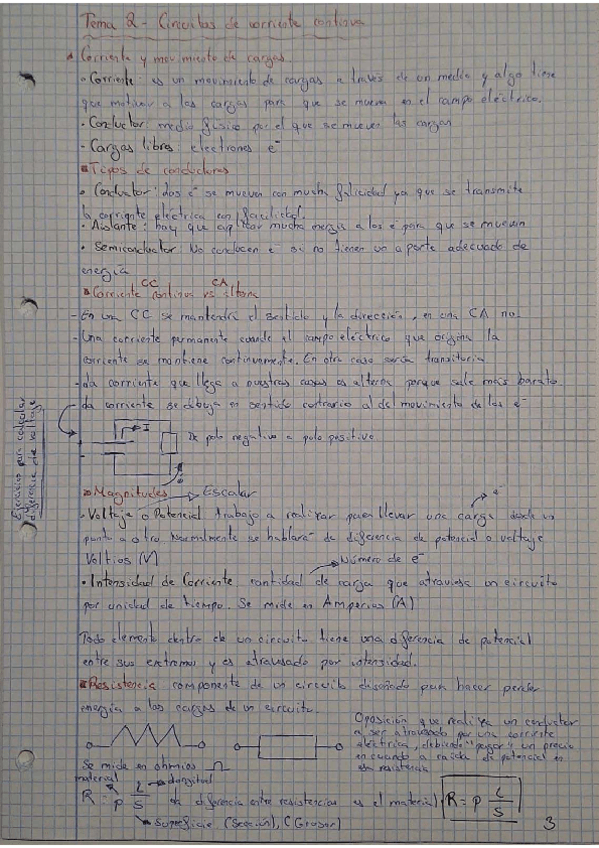 Tema 2 - Circuitos de corriente continua
Corriente y movimiento de cargas
Corriente: es un movimiento de cargas a través de un medio y algo tiene
que motivar a las cargas para que se muevan en el campo eléctrico.
Conductor: medio físico por el que se mueven las cargas
Cargas libres: electrones e⁻
Tipos de conductores
Conductor: Los e⁻ se mueven con mucha facilidad ya que se transmite
la corriente eléctrica con facilidad.
Aislante: hay que aplicar mucha energía a los e⁻ para que se muevan
Semiconductor: No conducen e⁻ si no tienen un aporte adecuado de
energía
CC CA
Corriente continua vs alterna
- En una CC se mantendrá el sentido y la dirección, en una CA no.
- Una corriente permanente cuando el campo eléctrico que origina la
corriente se mantiene continuamente. En otro caso sería transitoria
- La corriente que llega a nuestras casas es alterna porque sale más barato.
La corriente se dibuja en sentido contrario al del movimiento de los e⁻
Ejercicios para calcular
diferencia de voltaje
I
De polo negativo a polo positivo
Magnitudes Escalar
e⁻
Voltaje o Potencial trabajo a realizar para llevar una carga desde un
punto a otro. Normalmente se hablará de diferencia de potencial o voltaje
Voltios (V)
Número de e⁻
Intensidad de Corriente cantidad de carga que atraviesa un circuito
por unidad de tiempo. Se mide en Amperios (A)
Todo elemento dentro de un circuito tiene una diferencia de potencial
entre sus extremos y es atravesado por intensidad.
Resistencia componente de un circuito diseñado para hacer perder
energía a las cargas de un circuito.
Oposición que realiza un conductor
a ser atravesado por una corriente
eléctrica, debiendo "pagar" un precio
en cuanto a caída de potencial en
esa resistencia
Se mide en ohmios Ω
material Longitud
R = ρ L/S La diferencia entre resistencias es el material
R = ρ L/S
Superficie (Sección), (Grosor)
3